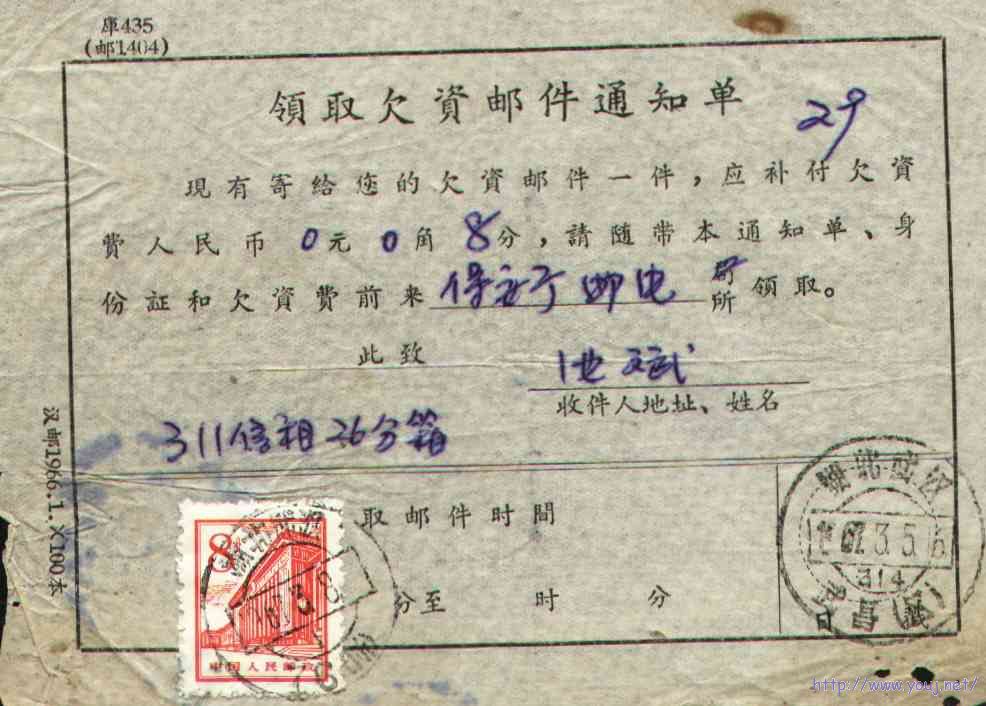 庫435
(邮1404)
領取欠資邮件通知单
29
現有寄給您的欠資邮件一件，应补付欠資
費人民币0元0角8分，請随带本通知单、身
份証和欠資費前来 邮电 所領取。
此致
收件人地址、姓名
311信箱26分箱
汉邮1966.1.×100本
取邮件时間
分至 时 分
8
中国人民邮政
湖北武汉
67.3.5.
314
http://www.youj.net/